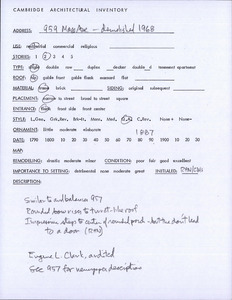 CAMBRIDGE ARCHITECTURAL INVENTORY
ADDRESS: 959 Mass Ave - demolished 1968
USE: residential commercial religious
STORIES: 1 2 3 4 5 6
TYPE: single double row duplex decker double 3 tenement apartment
ROOF: hip gable front gable flank mansard flat
MATERIAL: wood brick SIDING: original subsequent
PLACEMENT: narrow to street broad to street square
ENTRANCE: front front side front center
STYLE: ORNAMENTATION: little moderate elaborate 1887
DATE: 1790 1800 10 20 30 40 50 60 70 80 90 1900 10 20 30
MAP:
REMODELING: drastic moderate minor CONDITION: poor fair good excellent
IMPORTANCE TO SETTING: detrimental none moderate great INITIALED:
DESCRIPTION:
Similar to and balances 957
Rounded bow rises to turret-like roof
Impressive steps to center of rounded porch - but they don't lead
to a door
Eugene L. Clark, architect
See 957 for newspaper description